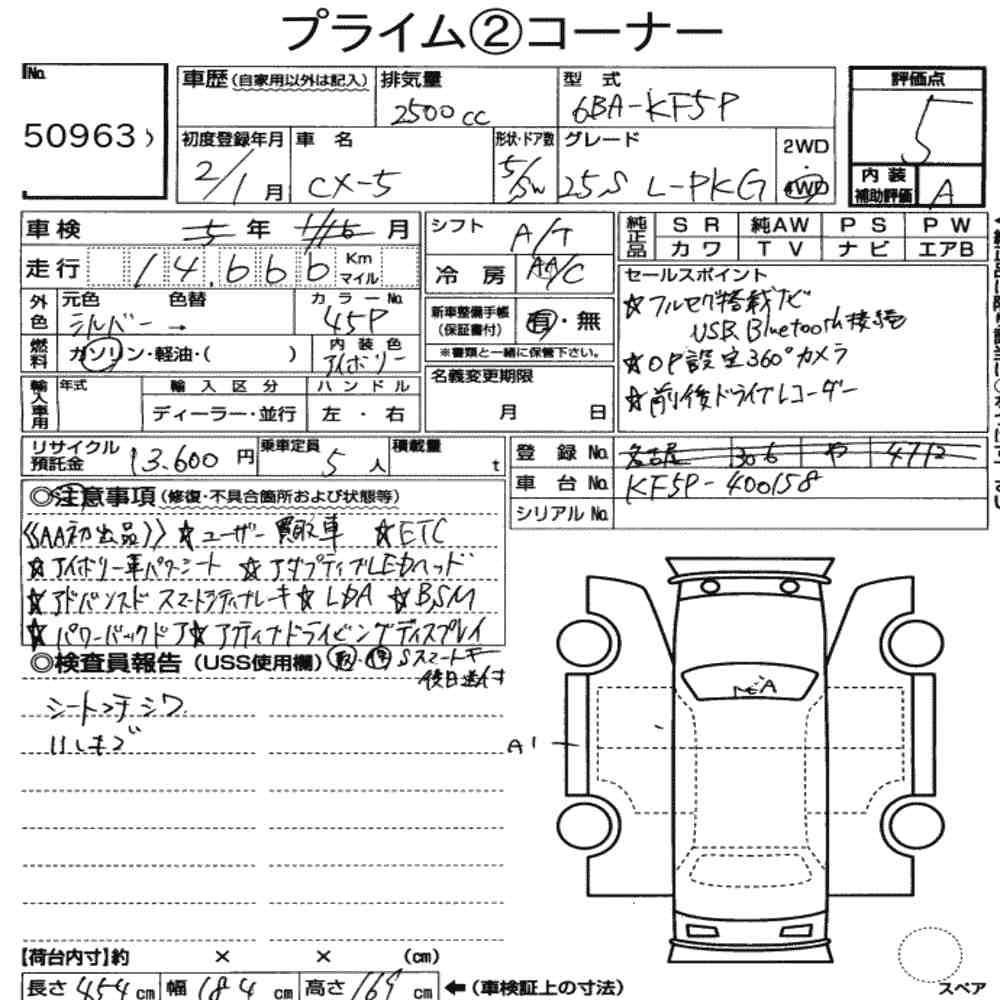 プライム②コーナー
No. 50963
車歴(自家用以外は記入) 排気量 2500cc 型式 6BA-KF5P 評価点 5
初度登録年月 2/1月 車名 CX-5 形状・ドア数 5/SW グレード 25S L-PKG 2WD・4WD 内装補助評価 A
車検 5年 月 シフト A/T 純正品 SR 純AW PS PW
カワ TV ナビ エアB
走行 14,666 Km マイル 冷房 AA/C セールスポイント
外色 元色 シルバー 色替 → カラーNo. 45P 新車整備手帳(保証書付) 有・無 ☆フルセグ搭載ナビ
USB Bluetooth接続
燃料 ガソリン・軽油・( ) 内装色 アイボリー ※書類と一緒に保管下さい。 ☆OP設定360°カメラ
輸入車用 年式 輸入区分 ハンドル 名義変更期限 ☆前後ドライブレコーダー
ディーラー・並行 左・右 月 日
リサイクル預託金 13,600円 乗車定員 5人 積載量 t 登録No. 名古屋 306 や 4712
車台No. KF5P-400158
シリアルNo.
◎注意事項(修復・不具合箇所および状態等)
《AA初出品》☆ユーザー買取車 ☆ETC
☆アイボリー革パワーシート ☆アダプティブLEDヘッド
☆アドバンスドスマートシティブレーキ ☆LDA ☆BSM
☆パワーバックドア ☆アクティブドライビングディスプレイ
◎検査員報告(USS使用欄) 取・保 Sスマートキー
後日送付
シートコゲ シワ
ナビA
A1
【荷台内寸】約 × × (cm)
長さ 454cm 幅 184cm 高さ 169cm ←(車検証上の寸法)
スペア